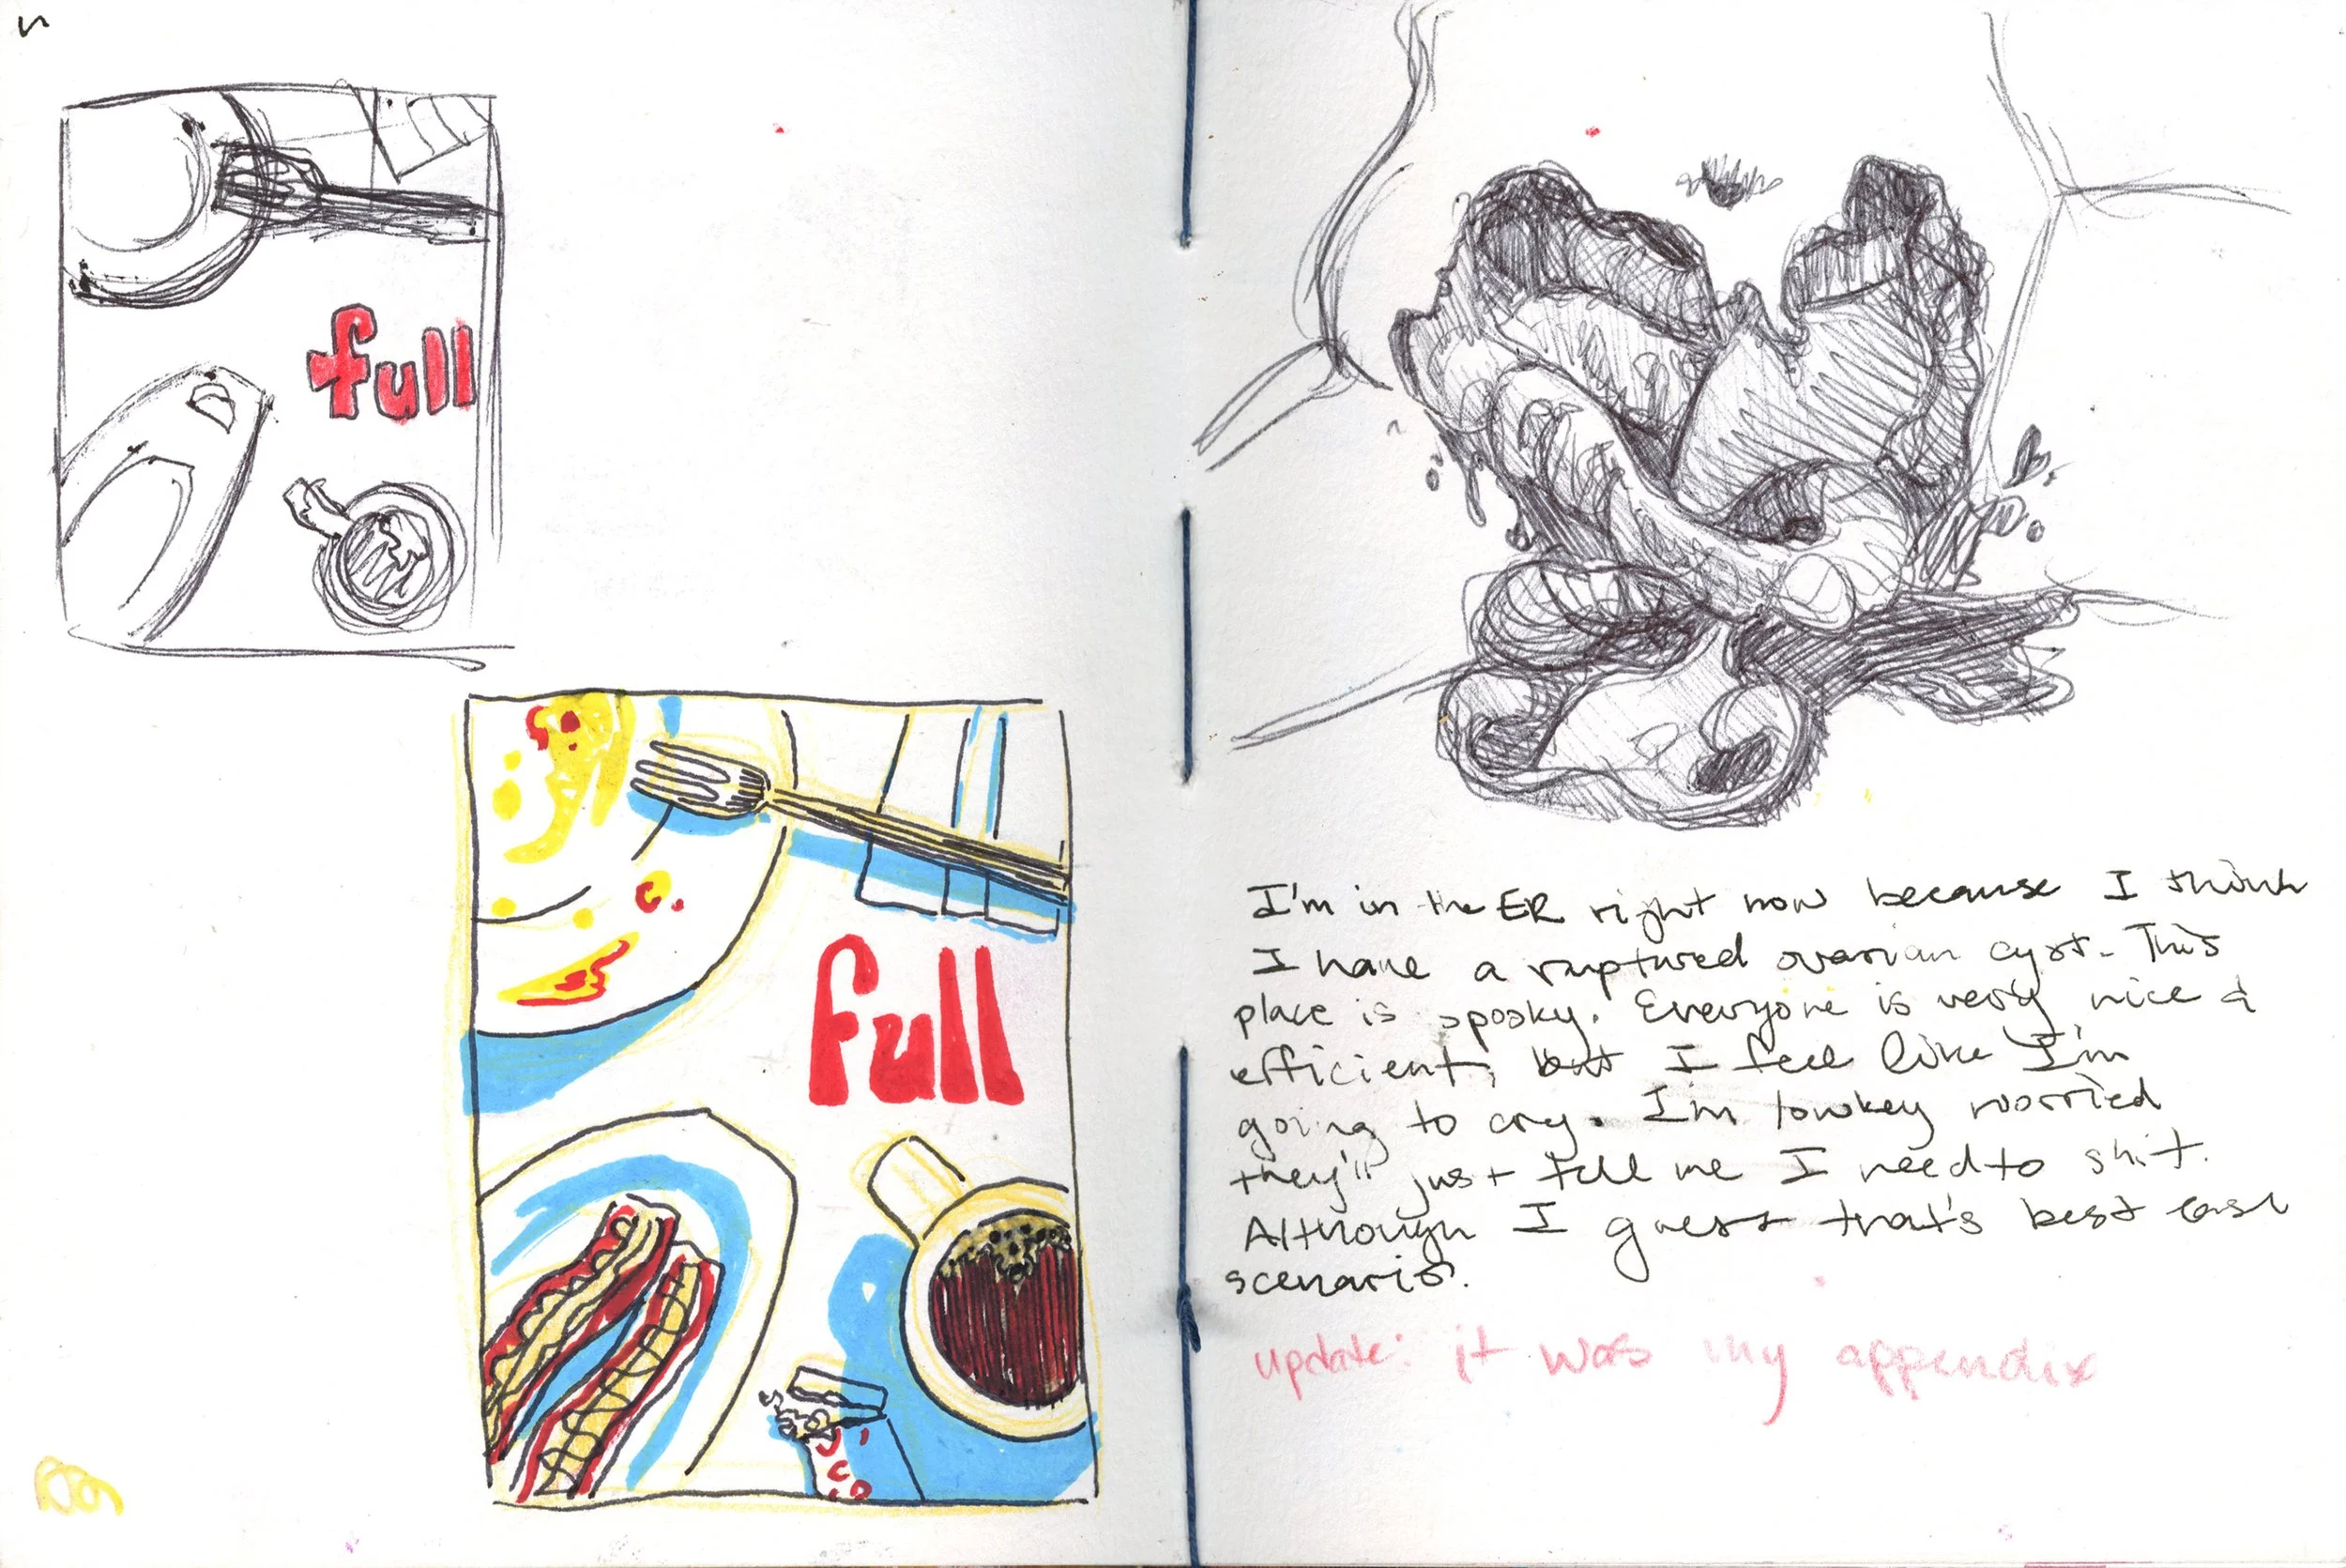 full
full
I'm in the ER right now because I think
I have a ruptured ovarian cyst. This
place is spooky. Everyone is very nice &
efficient, but I feel like I'm
going to cry. I'm lowkey worried
they'll just tell me I need to shit.
Although I guess that's best case
scenario.
update: it was my appendix